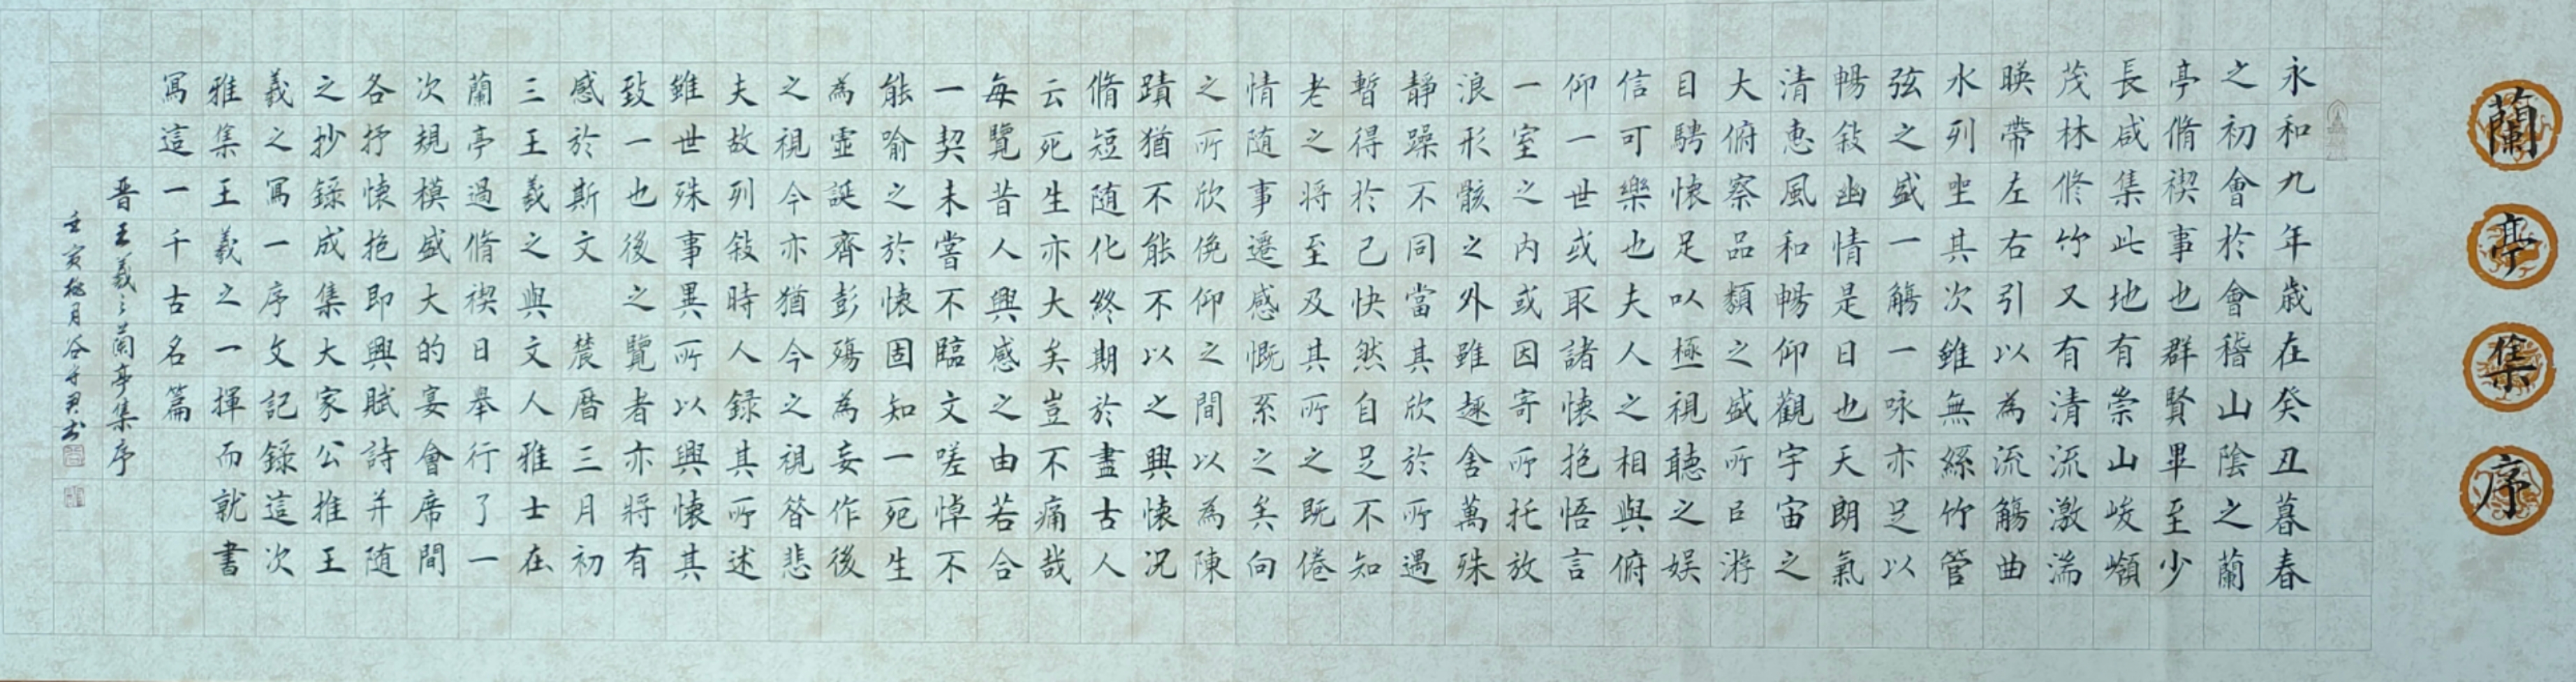 蘭亭集序
永和九年歲在癸丑暮春
之初會於會稽山陰之蘭
亭脩禊事也群賢畢至少
長咸集此地有崇山峻嶺
茂林修竹又有清流激湍
暎帶左右引以為流觴曲
水列坐其次雖無絲竹管
弦之盛一觴一咏亦足以
暢敘幽情是日也天朗氣
清惠風和暢仰觀宇宙之
大俯察品類之盛所㠯游
目騁懷足以極視聽之娛
信可樂也夫人之相與俯
仰一世或取諸懷抱悟言
一室之內或因寄所托放
浪形骸之外雖趣舍萬殊
靜躁不同當其欣於所遇
暫得於己快然自足不知
老之將至及其所之既倦
情随事遷感慨系之矣向
之所欣俛仰之間以為陳
蹟猶不能不以之興懷况
脩短随化終期於盡古人
云死生亦大矣豈不痛哉
每覽昔人興感之由若合
一契未嘗不臨文嗟悼不
能喻之於懷固知一死生
為虛誕齊彭殤為妄作後
之視今亦猶今之視昔悲
夫故列敘時人錄其所述
雖世殊事異所以興懷其
致一也後之覽者亦將有
感於斯文 農曆三月初
三王羲之與文人雅士在
蘭亭過脩禊日舉行了一
次規模盛大的宴會席間
各抒懷抱即興賦詩并随
之抄錄成集大家公推王
羲之寫一序文記錄這次
雅集王羲之一揮而就書
寫這一千古名篇
晋王羲之蘭亭集序
壬寅桃月谷